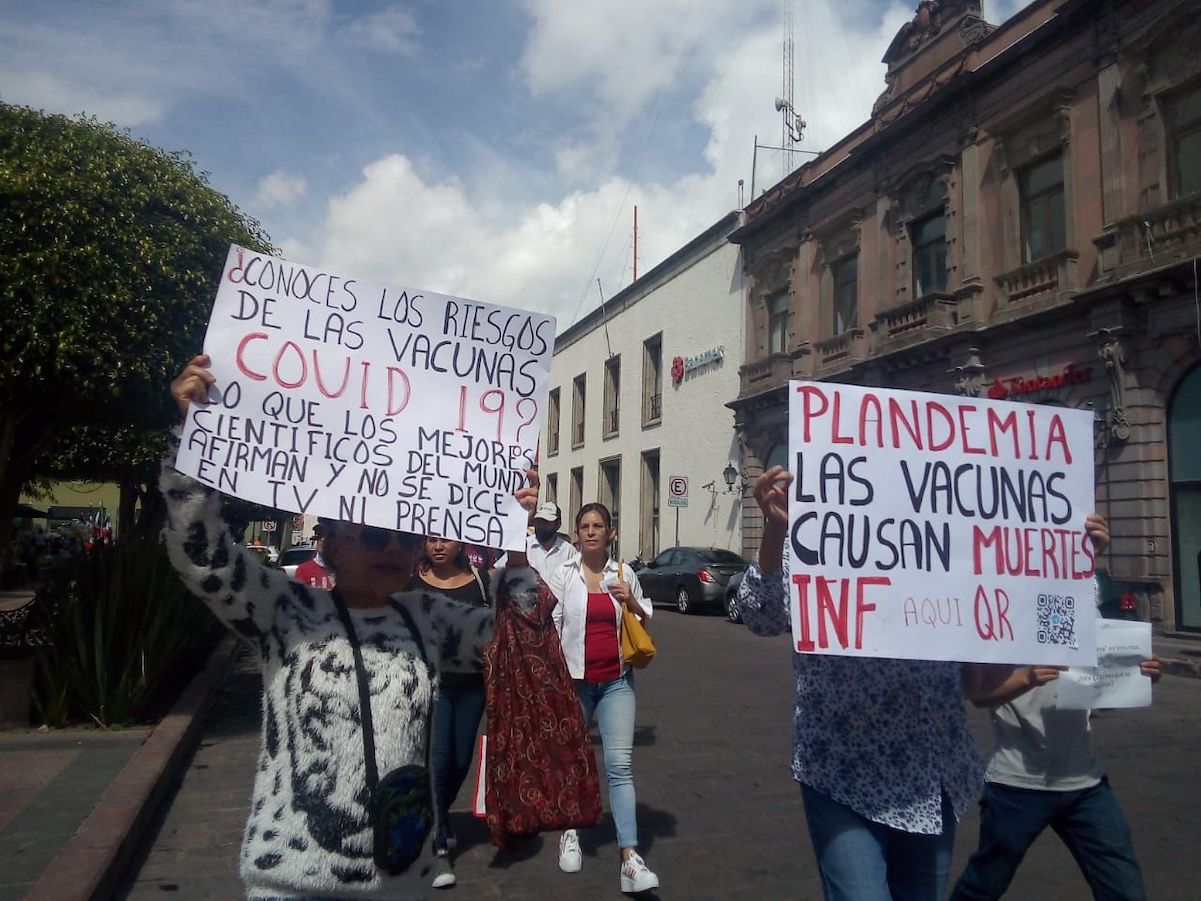 ¿CONOCES LOS RIESGOS
DE LAS VACUNAS
COVID 19?
LO QUE LOS MEJORES
CIENTIFICOS DEL MUNDO
AFIRMAN Y NO SE DICE
EN TV NI PRENSA
PLANDEMIA
LAS VACUNAS
CAUSAN MUERTES
INF AQUI QR
BANAMEX
Santander
E